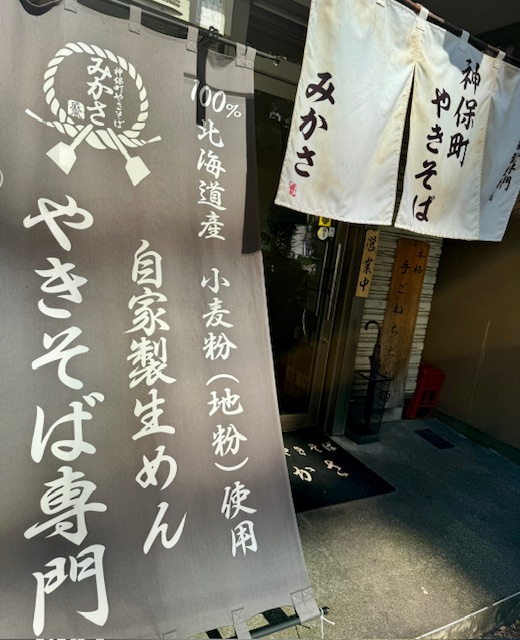 100%北海道産 小麦粉(地粉)使用
自家製生めん
やきそば専門
神保町やきそば
みかさ
神保町
やきそば
みかさ
営業中
本格